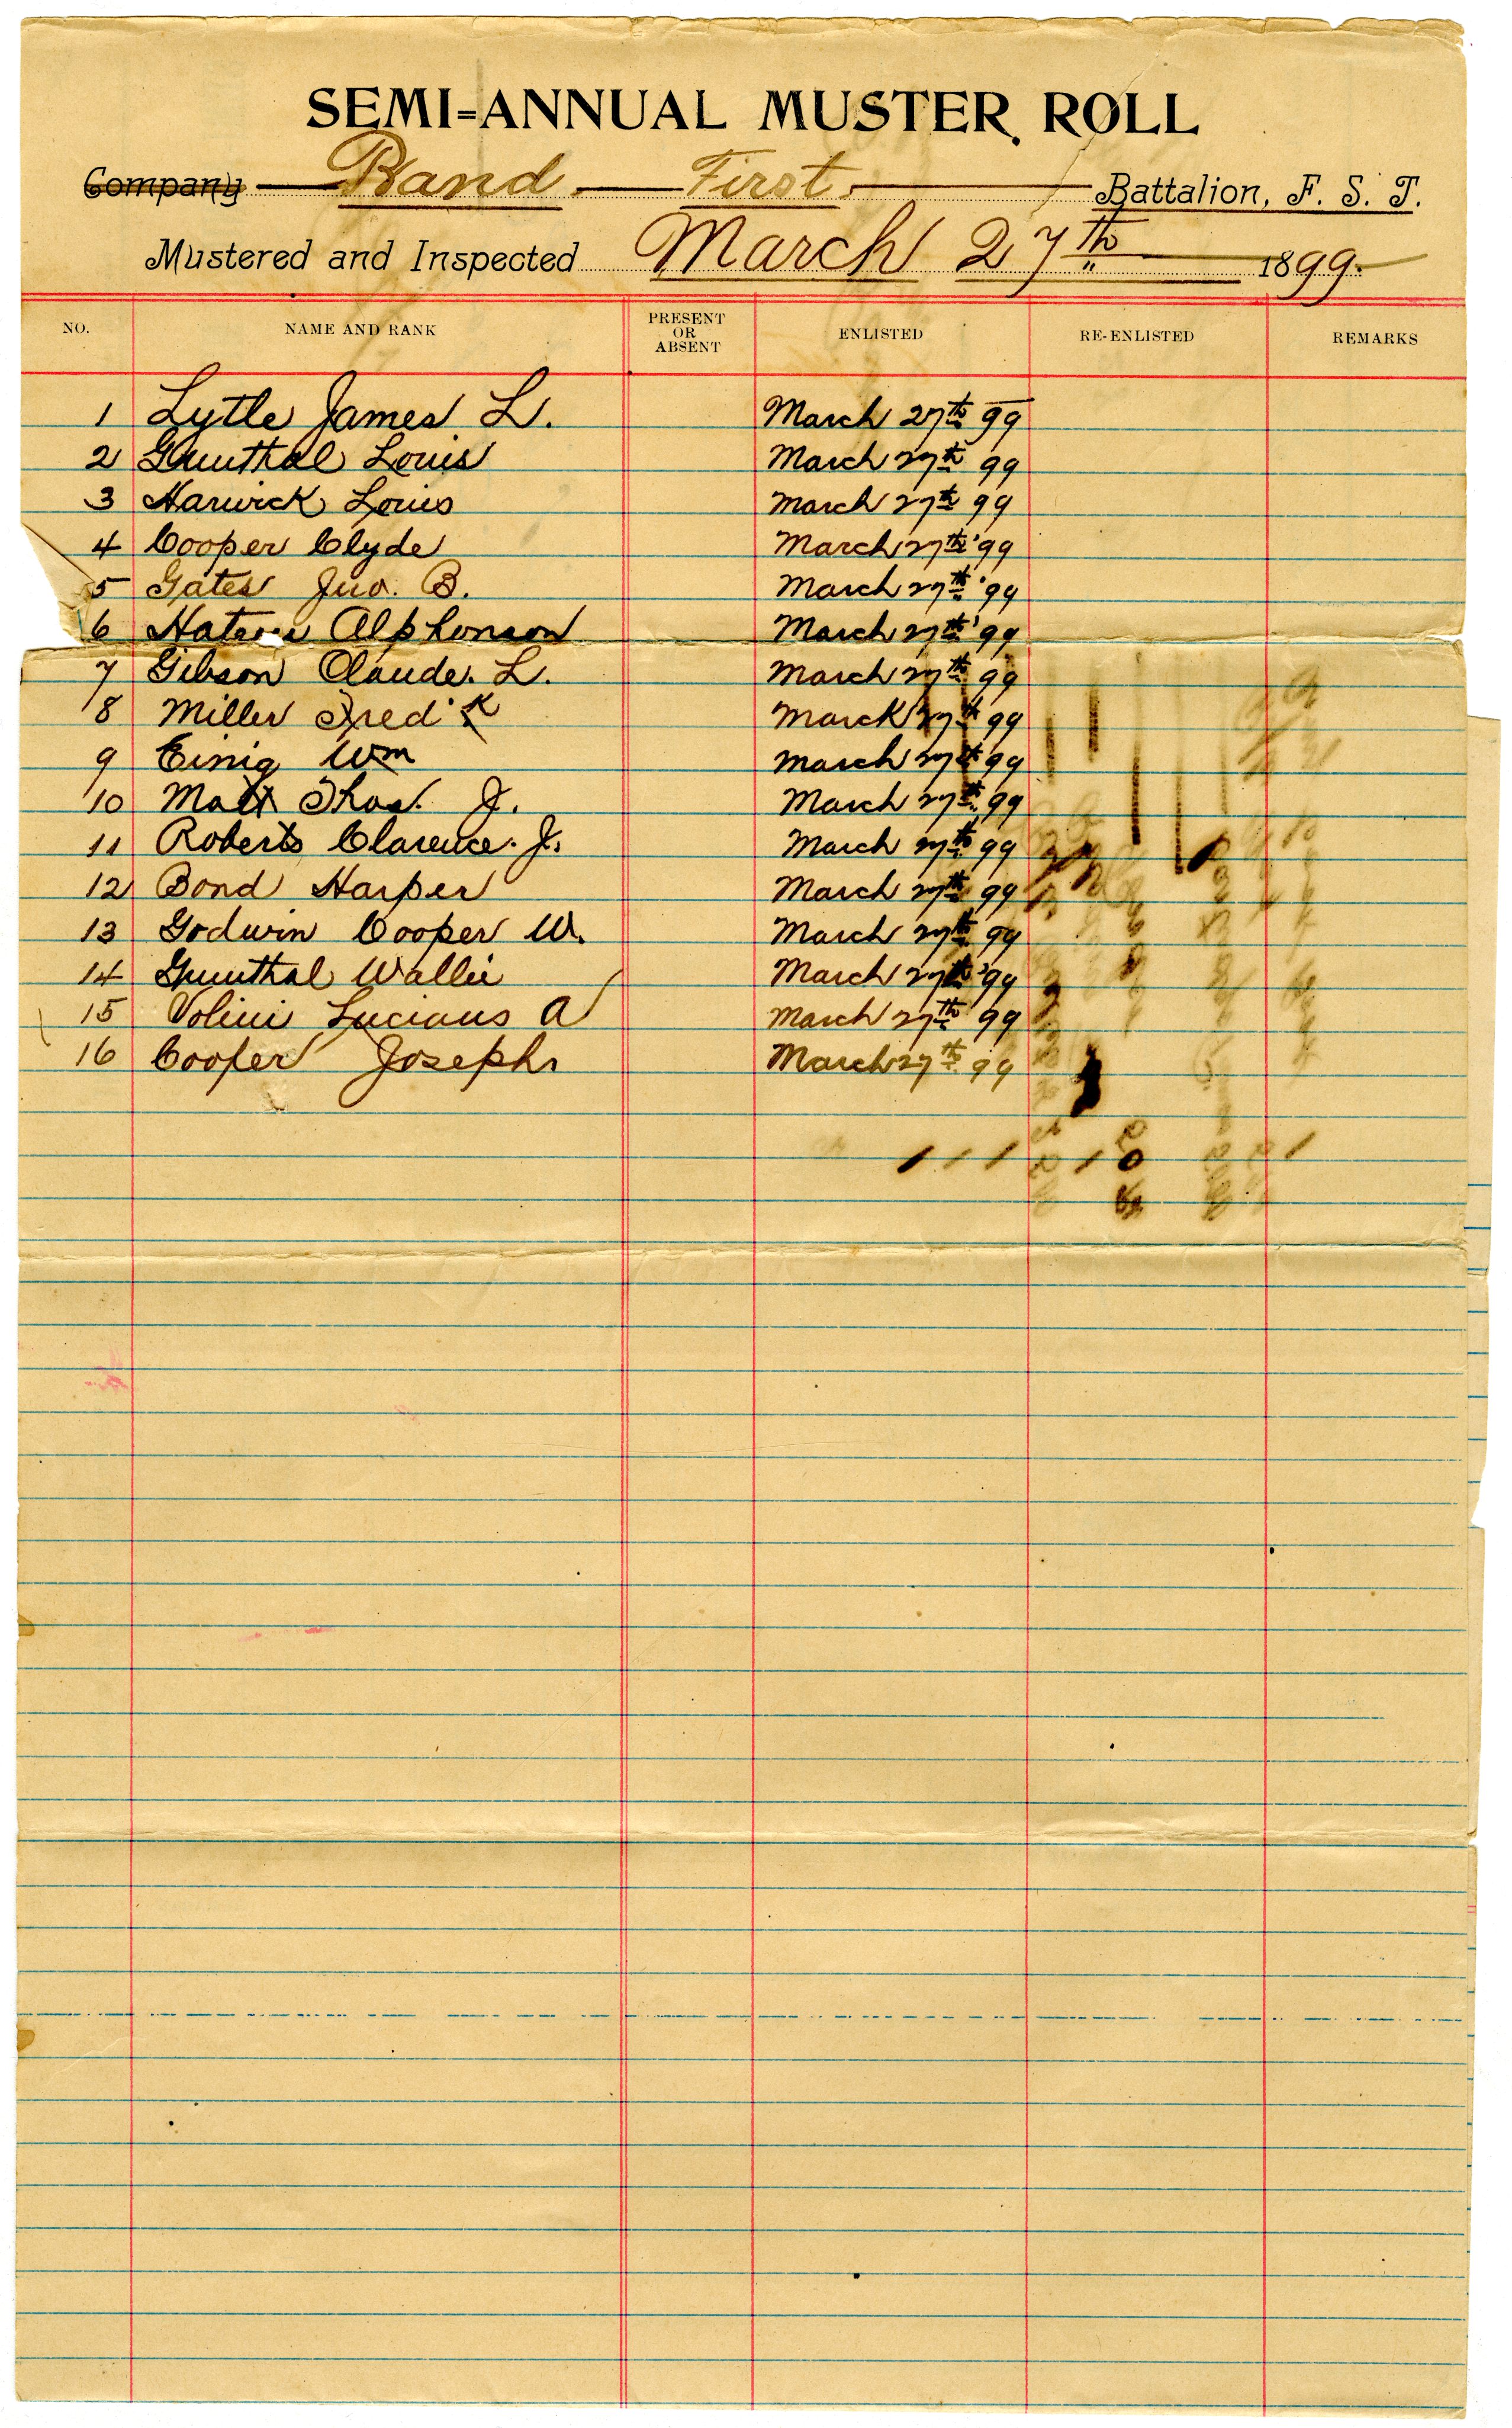 SEMI=ANNUAL MUSTER ROLL
Company Band First Battalion, F. S. T.
Mustered and Inspected March 27th 1899.
NO. NAME AND RANK PRESENT OR ABSENT ENLISTED RE-ENLISTED REMARKS
1 Lytle James L. March 27th 99
2 Gruuthal Louis March 27th 99
3 Harwick Louis March 27th 99
4 Cooper Clyde March 27th '99
5 Gates Jno. B. March 27th '99
6 Alphonson March 27th '99
7 Gibson Claude. L. March 27th 99
8 Miller Fred'k March 27th 99
9 Einig Wm March 27th 99
10 Thos. J. March 27th 99
11 Roberts Clarence. J. March 27th 99
12 Bond Harper March 27th 99
13 Godwin Cooper W. March 27th 99
14 Gruuthal Wallie March 27th '99
15 Volini Lucious A March 27th 99
16 Cooper Joseph March 27th 99